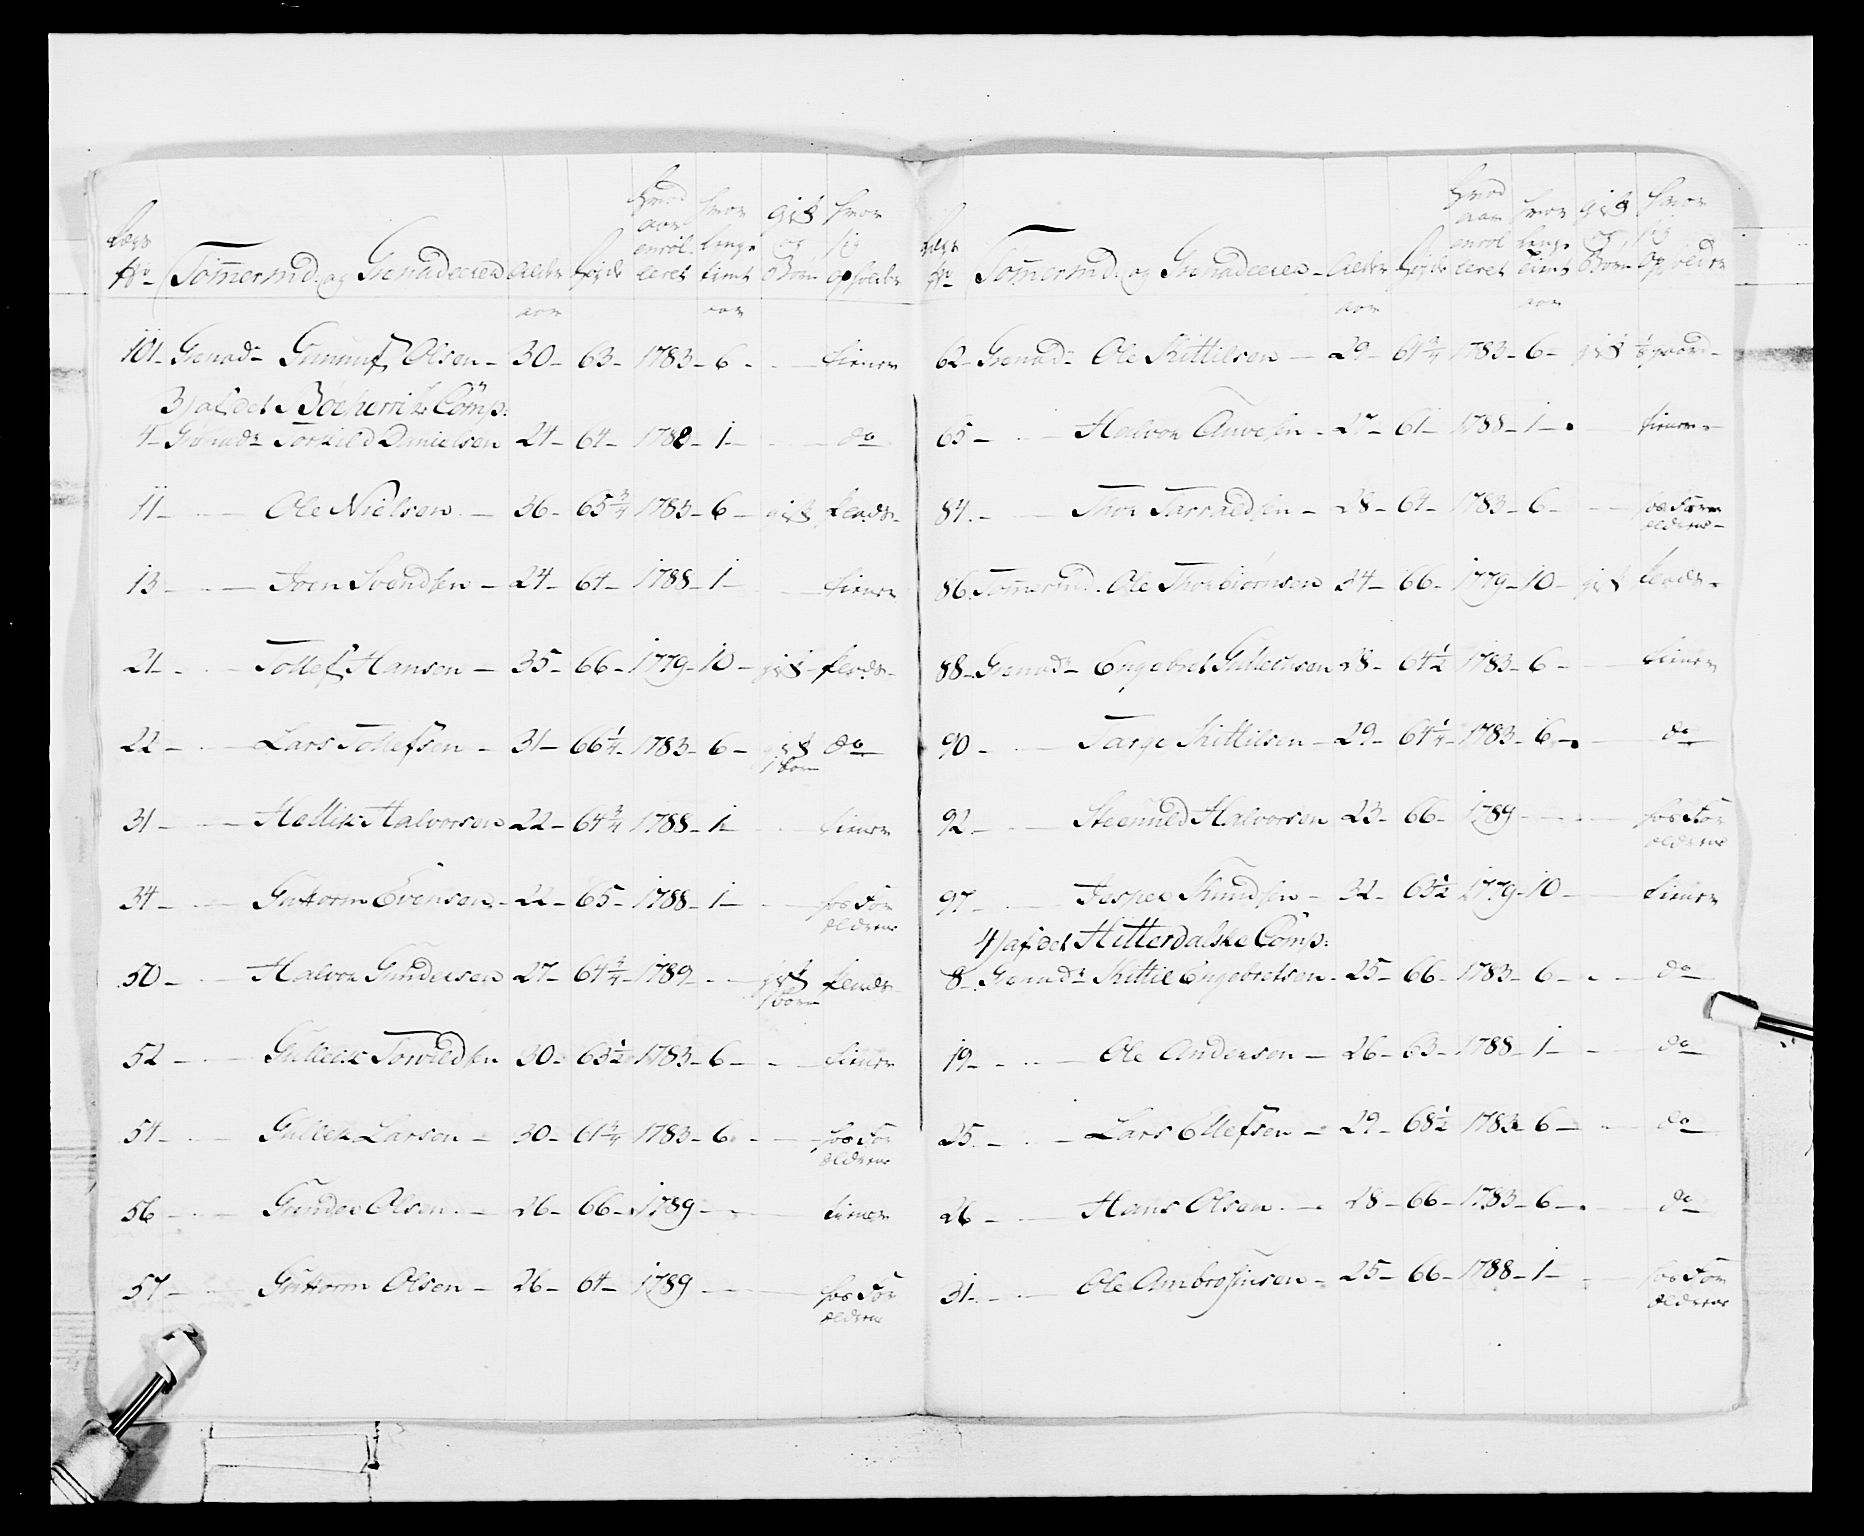 Lægs No Tømmermd. og Grenaderer Alder aar Høyde hvad aar enrolleret hvor lenge tient aar gift og Børn hvor sig opholder
101 - Grenadr Gunnuf Olsen - 30 - 63 - 1783 - 6 - tiener
3) af det Böeherriske Comp:
4 - Grenadr Torkild Danielsen 24 - 64 - 1788 - 1 - do
11 - Ole Nielsen - 36 - 65 3/4 1783 - 6 - gift Pladr -
13 - Joen Svendsen - 24 - 64 - 1788 - 1 - tiener
21 - Tollef Hansen - 35 - 66 - 1779 - 10 - gift Pladr -
22 - Lars Tollefsen - 31 - 66 1/4 - 1783 - 6 - gift 1 barn do
31 - Hellik Halvorsen 22 - 64 3/4 1788 - 1 - tiener
34 - Guttorm Evensen - 22 - 65 - 1788 - 1 - hos For ældrene
50 - Halvor Gundersen 27 - 64 3/4 - 1789 - gift 1 barn Pladr -
52 - Gullek Torvildsen 30 - 63 1/2 1783 - 6 - tiener
54 - Gullek Larsen - 30 - 61 3/4 1783 - 6 - hos For ældrene
56 - Gunder Olsen - 26 - 66 - 1789 - tiener
57 - Guttorm Olsen - 26 - 64 - 1789 - hos For ældrene
Lægs No Tømmermd. og Grenaderer - Alder aar Høyde hvad aar enrolleret hvor lenge tient aar gift og Børn hvor sig Opholder
62 - Grenadr Ole Kittilsen - 29 - 64 3/4 1783 - 6 - gift 1/2 gaard -
65 - Halvor - 27 - 61 - 1788 - 1 - tiener -
84 - Thor - 28 - 64 - 1783 - 6 - hos Foræ ældrene -
86 Tømmermd. Ole Thorbiørnsen 34 - 66 - 1779 - 10 - gift Pladr -
88 - Grenadr Engebret Gullichsen 28 - 64 1/2 1783 - 6 - tiener
90 - Targe Kittilsen - 29 - 64 1/4 - 1783 - 6 - do
92 - Halvorsen 23 - 66 - 1789 - hos For ældrene
97 - Jesper Knudsen - 32 - 63 1/2 1779 - 10 - tiener
4) af det Hitterdalske Comp:
8 - Grenadr Kittil Engebretsen - 25 - 66 - 1783 - 6 - do
19 - Ole Andersen - 26 - 63 - 1788 - 1 - do
25 - Lars Ellefsen - 29 - 68 1/2 1783 - 6 - do
26 - Hans Olsen - 28 - 66 - 1783 - 6 - do
31 - Ole Ambrosiusen - 25 - 66 - 1788 - 1 - hos For ældrene